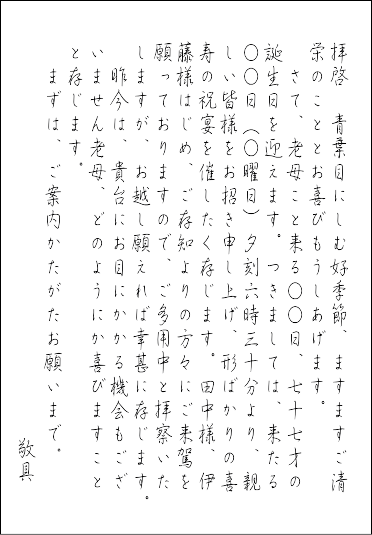 拝啓　青葉目にしむ好季節、ますますご清
栄のこととお喜びもうしあげます。
　さて、老母こと来る〇〇日、七十七才の
誕生日を迎えます。つきましては、来たる
〇〇日（〇曜日）夕刻六時三十分より、親
しい皆様をお招き申し上げ、形ばかりの喜
寿の祝宴を催したく存じます。田中様、伊
藤様はじめ、ご存知よりの方々にご来駕を
願っておりますので、ご多用中と拝察いた
しますが、お越し願えれば幸甚に存じます。
　昨今は、貴台にお目にかかる機会もござ
いません老母、どのようにか喜びますこと
と存じます。
　まずは、ご案内かたがたお願いまで。
敬具